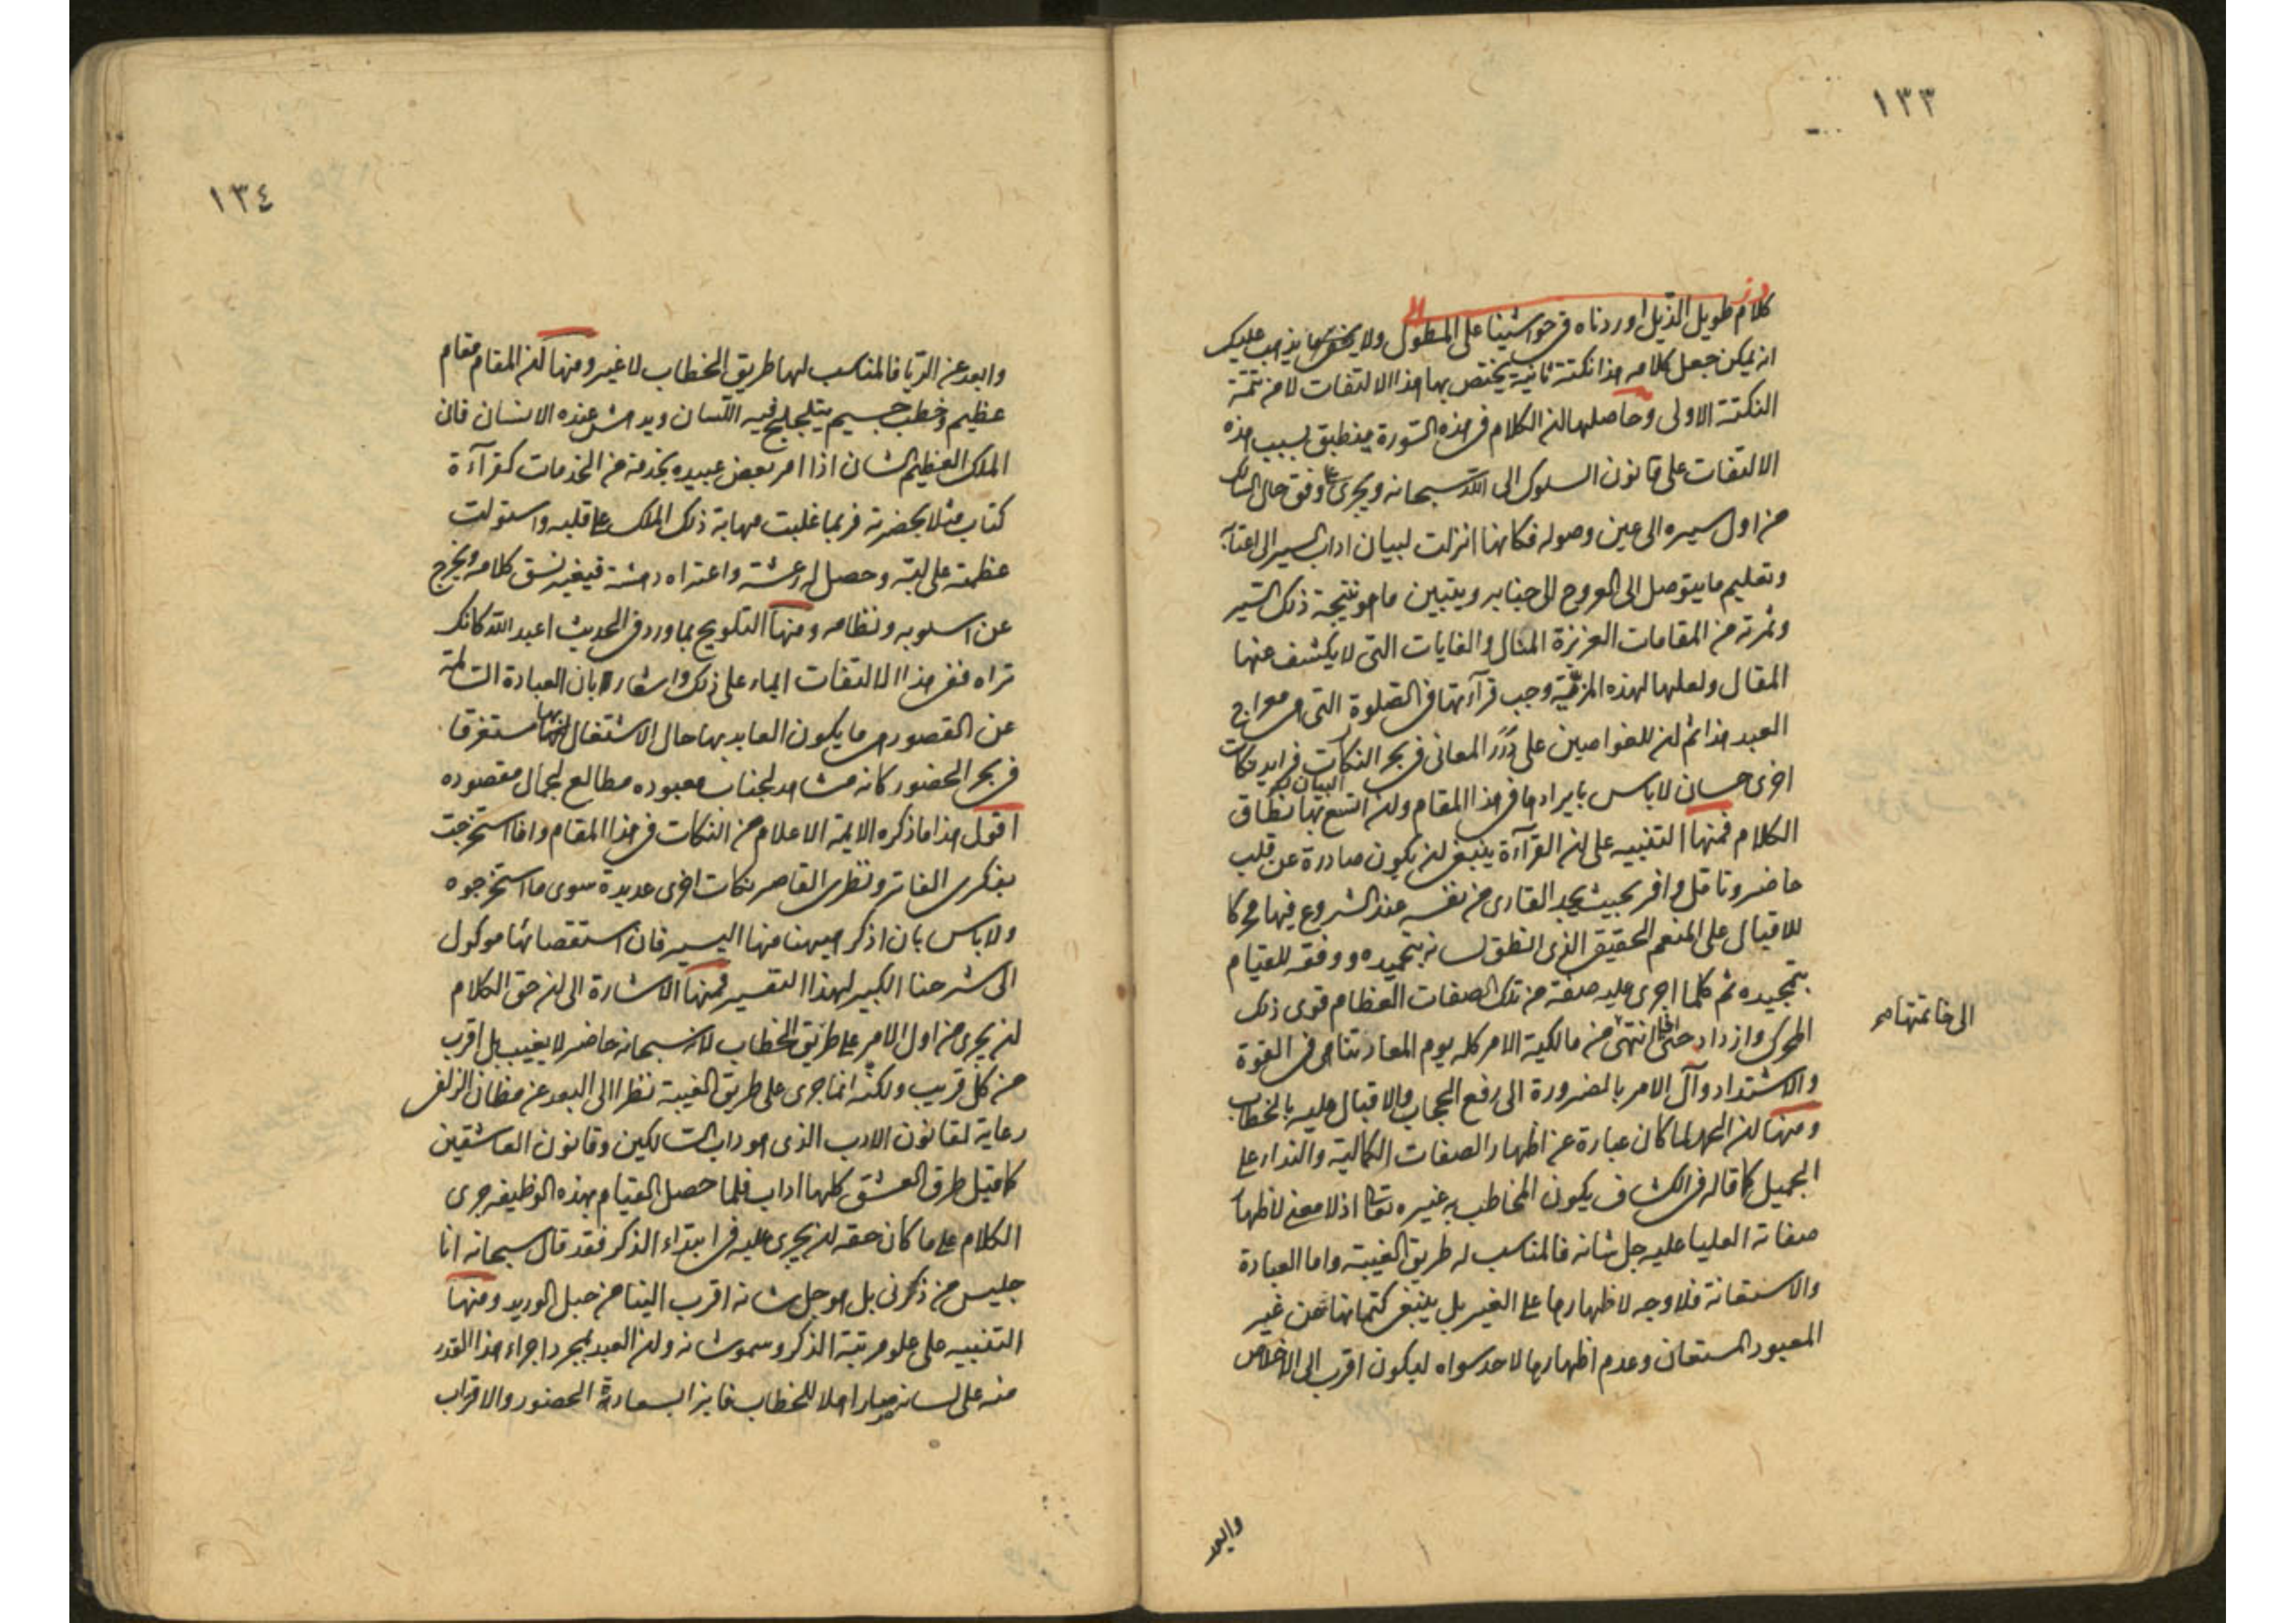 ١٣٣
كلام طويل الذيل اوردناه فى حواشينا على المطول ولا يذهب عليك
انه يمكن جعل كلامه هذا نكتة ثانية يختص بها هذا الالتفات لا من تتمة
النكتة الاولى وحاصلها ان الكلام فى هذه السورة ينطبق بسبب هذه
الالتفات على قانون السلوك الى الله سبحانه ويجرى على وفق حال السالك
من اول سيره الى حين وصوله فكانها انزلت لبيان اداب السير الى اعتابه
وتعليم ما يتوصل الى العروج الى جنابه ويتبين ما هو نتيجة ذلك السير
وثمرته من المقامات العزيزة المنال والغايات التى لا يكشف عنها
المقال ولعلها لهذه المزية وجب قرآءتها فى الصلوة التى هى معراج
العبد هذا ثم ان للغواصين على درر المعانى فى بحر النكات فرايد نكات
اخرى حسان لا باس بايرادها فى هذا المقام وان اتسع بها نطاق
الكلام فمنها التنبيه على ان القرآءة ينبغى ان يكون صادرة عن قلب
حاضر وتامل وافر بحيث يجد القارى من نفسه عند الشروع فيها محركا
للاقبال على المنعم الحقيقى الذى انطق لسانه بتحميده ووفقه للقيام
بتمجيده ثم كلما اجرى عليه صفة من تلك الصفات العظام قوى ذلك
المحرك وازداد حتى اذا انتهى من مالكية الامر كله يوم المعاد تناهى فى القوة
الى خاتمتها صح
والاشتداد وآل الامر بالضرورة الى رفع الحجاب والاقبال عليه بالخطاب
ومنها ان الحمد لما كان عبارة عن اظهار الصفات الكمالية والنداء على
الجميل كما قاله فى الكشاف يكون المخاطب به غيره تعالى اذ لا معنى لاظهار
صفاته العليا عليه جل شانه فالمناسب له طريق الغيبة واما العبادة
والاستعانة فلا وجه لاظهارها على الغير بل ينبغى كتمانها عن غير
المعبود المستعان وعدم اظهارها لاحد سواه ليكون اقرب الى الاخلاص
١٣٤
وابعد عن الريا فالمناسب لها طريق الخطاب لا غير ومنها ان المقام مقام
عظيم وخطب جسيم يتلجلج فيه اللسان ويدهش عنده الانسان فان
الملك العظيم الشان اذا امر بعض عبيده بخدمة من الخدمات كقرآءة
كتاب مثلا بحضرته فربما غلبت مهابة ذلك الملك على قلبه واستولت
عظمته على لبه وحصل له رعشة واعتراه دهشة فيغير نسق كلامه ويخرج
عن اسلوبه ونظامه ومنها التلويح بما ورد فى الحديث اعبد الله كانك
تراه ففى هذا الالتفات ايماء على ذلك واشعار بان العبادة السالمة
عن القصور هى ما يكون العابد بها حال الاشتغال بها مستغرقا
فى بحر الحضور كانه مشاهد لجناب معبوده مطالع لجمال مقصوده
اقول هذا ما ذكره الايمة الاعلام من النكات فى هذا المقام وانا استخرجت
بفكرى الفاتر ونظرى القاصر نكات اخرى عديدة سوى ما استخرجوه
ولا باس بان اذكر هيهنا منها اليسير فان استقصائها موكول
الى شرحنا الكبير لهذا التفسير فمنها الاشارة الى ان حق الكلام
ان يجرى من اول الامر على طريق الخطاب لانه سبحانه حاضر لا يغيب بل اقرب
من كل قريب ولكنه انما جرى على طريق الغيبة نظرا الى البعد عن مظان الزلفى
رعاية لقانون الادب الذى هو داب السالكين وقانون العاشقين
كما قيل طرق العشق كلها اداب فلما حصل القيام بهذه الوظيفه جرى
الكلام على ما كان حقه ان يجرى عليه فى ابتداء الذكر فقد قال سبحانه انا
جليس من ذكرنى بل هو جل شانه اقرب الينا من حبل الوريد ومنها
التنبيه على علو مرتبة الذكر وسمو شانه وان العبد بمجرد اجراء هذا القدر
منه على لسانه صار اهلا للخطاب فايزا بسعادة الحضور والاقتراب